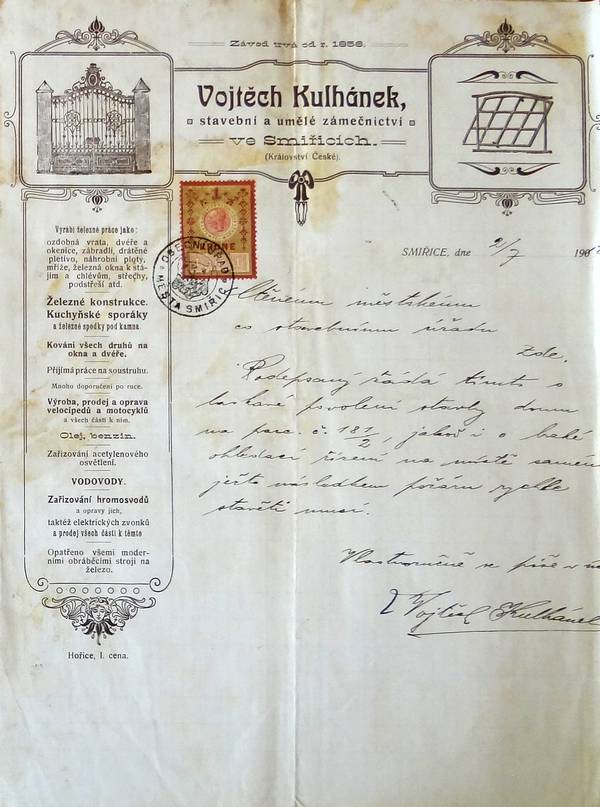 Závod trvá od r. 1856.
Vojtěch Kulhánek,
stavební a umělé zámečnictví
ve Smiřicích.
(Království České).
1
OBECNÍ ÚŘAD
MĚSTA SMIŘIC
SMIŘICE, dne 9/7 190
Vyrábí železné práce jako:
ozdobná vrata, dvéře a
okenice, zábradlí, drátěné
pletivo, náhrobní ploty,
mříže, železná okna k stá-
jím a chlévům, střechy,
podstřeší atd.
Železné konstrukce.
Kuchyňské sporáky
a železné spodky pod kamna.
Kování všech druhů na
okna a dvéře.
Přijímá práce na soustruhu.
Mnoho doporučení po ruce.
Výroba, prodej a oprava
velocipedů a motocyklů
a všech částí k nim.
Olej, benzin.
Zařizování acetylenového
osvětlení.
VODOVODY.
Zařizování hromosvodů
a opravy jich,
taktéž elektrických zvonků
a prodej všech částí k těmto
Opatřeno všemi moder-
ními obráběcími stroji na
železo.
Hořice, I. cena.
Ctěnému městskému
co stavebnímu úřadu
zde.
Podepsaný žádá tímto o
laskavé povolení stavby domu
na parc. č. 181/2, jakož i o
ohledací řízení na místě samém
ježto následkem požáru rychle
stavěti musí.
Vlastnoručně se píše v
Vojtěch Kulhánek